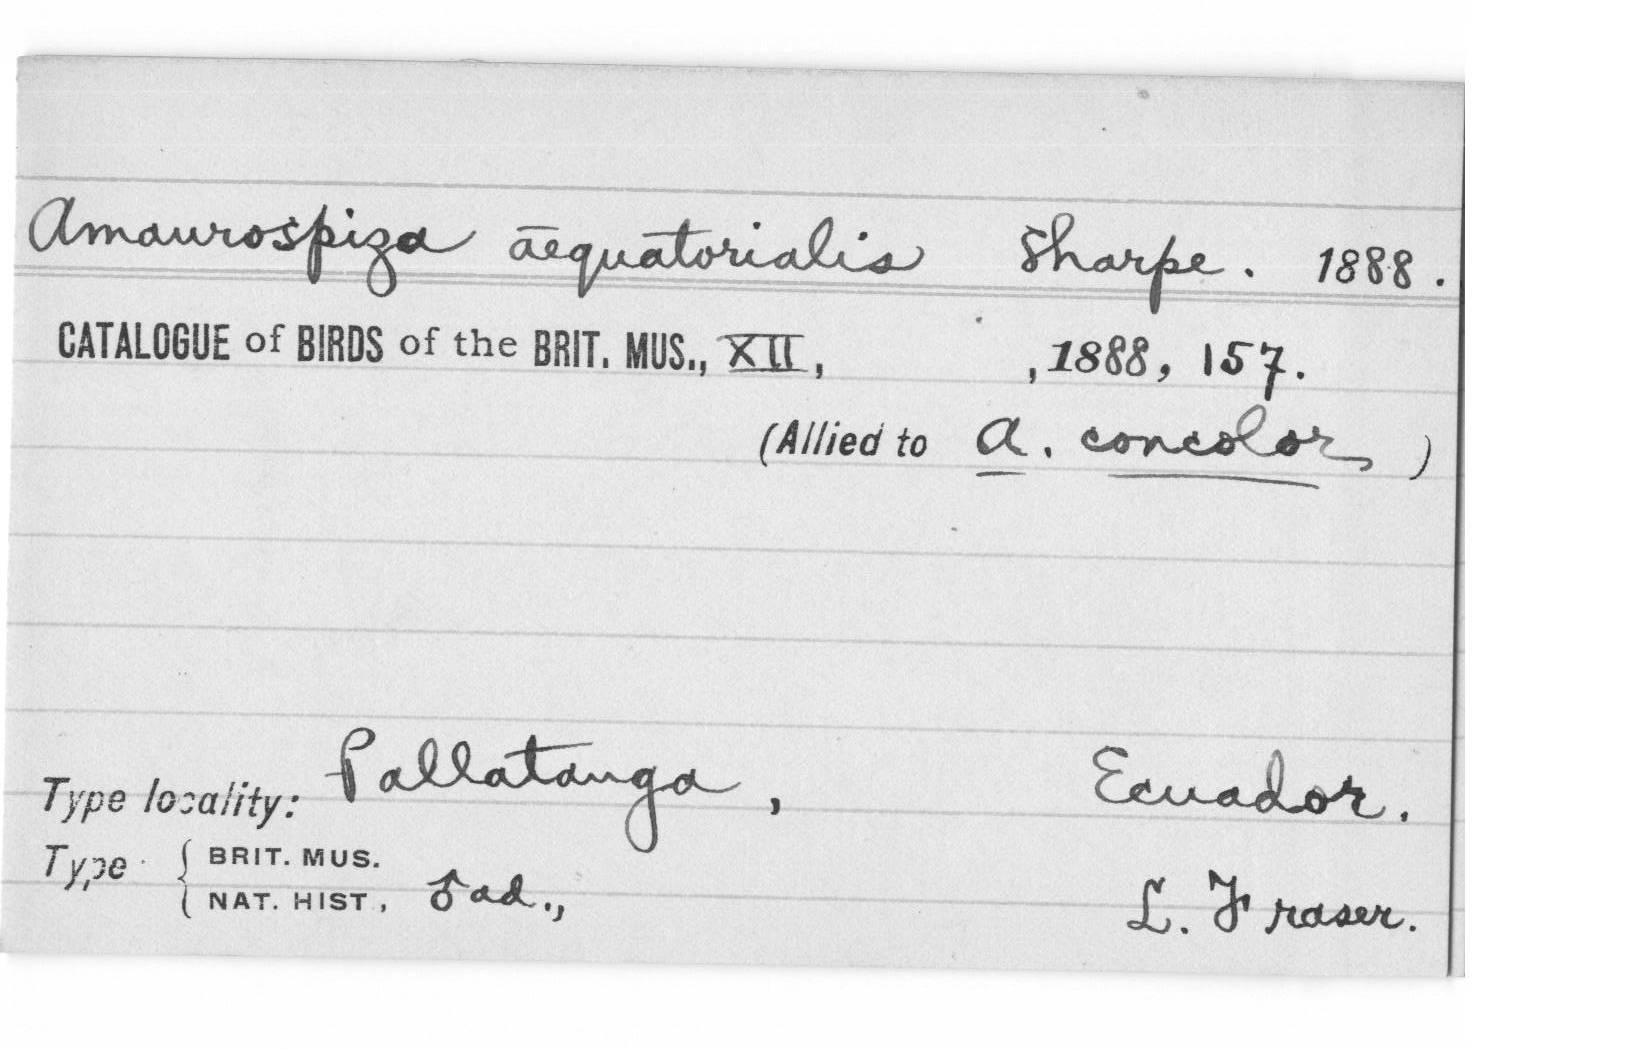 Amaurospiza aequatorialis Sharpe. 1888.
CATALOGUE of BIRDS of the BRIT. MUS., XII, , 1888, 157.
(Allied to A. concolor)
Type locality: Pallatanga, Ecuador.
Type { BRIT. MUS.
NAT. HIST., ♂ ad., L. Fraser.